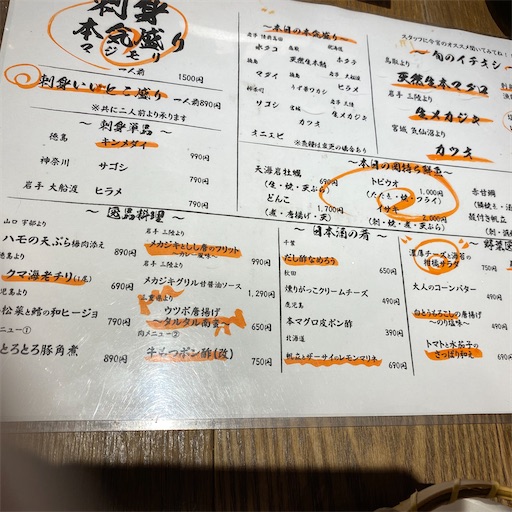 刺身
本気盛り
マジモリ
一人前 1500円
刺身いいとこ盛り 一人前890円
※共に二人前より承ります
～ 刺身単品 ～
徳島 キンメダイ 990円
神奈川 サゴシ 790円
岩手 大船渡 ヒラメ 790円
～本日の本気盛り～
ホタテ
マダイ
サゴシ
オニエビ
天然生本鮪
ヒラメ
カツオ
スタッフに今宮のオススメ聞いてみてね！
～ 旬のイチオシ ～
鳥取より
天然生本マグロ
岩手 三陸より
生メカジキ
宮城 気仙沼より
カツオ
～本日の図持ち鮮魚～
天海岩牡蠣 690円
(生・焼・天ぷら)
どんこ 1,700円
(煮・唐揚げ・天)
トビウオ 1,000円
(たたき・焼・フライ)
イサキ 2,000円
(刺・焼・煮・天ぷら)
赤甘鯛
殻付き帆立
～ 逸品料理 ～
山口 宇部より
ハモの天ぷら梅肉添え 890円
徳島より
クマ海老チリ 690円
鹿児島より
小松菜と鱈の和ヒージョ 790円
肉メニュー①
とろとろ豚角煮 890円
岩手 三陸より
メカジキとしし唐のフリット
～カレー風味～ 990円
岩手 三陸より
メカジキグリル甘醤油ソース 1,290円
三重県より
ウツボ唐揚げ
～タルタル南蛮～ 650円
肉メニュー②
牛もつポン酢(改) 750円
～ 日本酒の肴 ～
千葉
だし酢なめろう 650円
秋田
燻りがっこクリームチーズ 490円
鹿児島
本マグロ皮ポン酢 390円
北海道
帆立とザーサイのレモンマリネ 690円
～ 野菜
濃厚チーズと海苔の
柑橘サラダ 750円
大人のコーンバター 490円
白とうもろこしの唐揚げ
～のり塩味～ 490円
トマトと水茄子の
さっぱり和え 690円